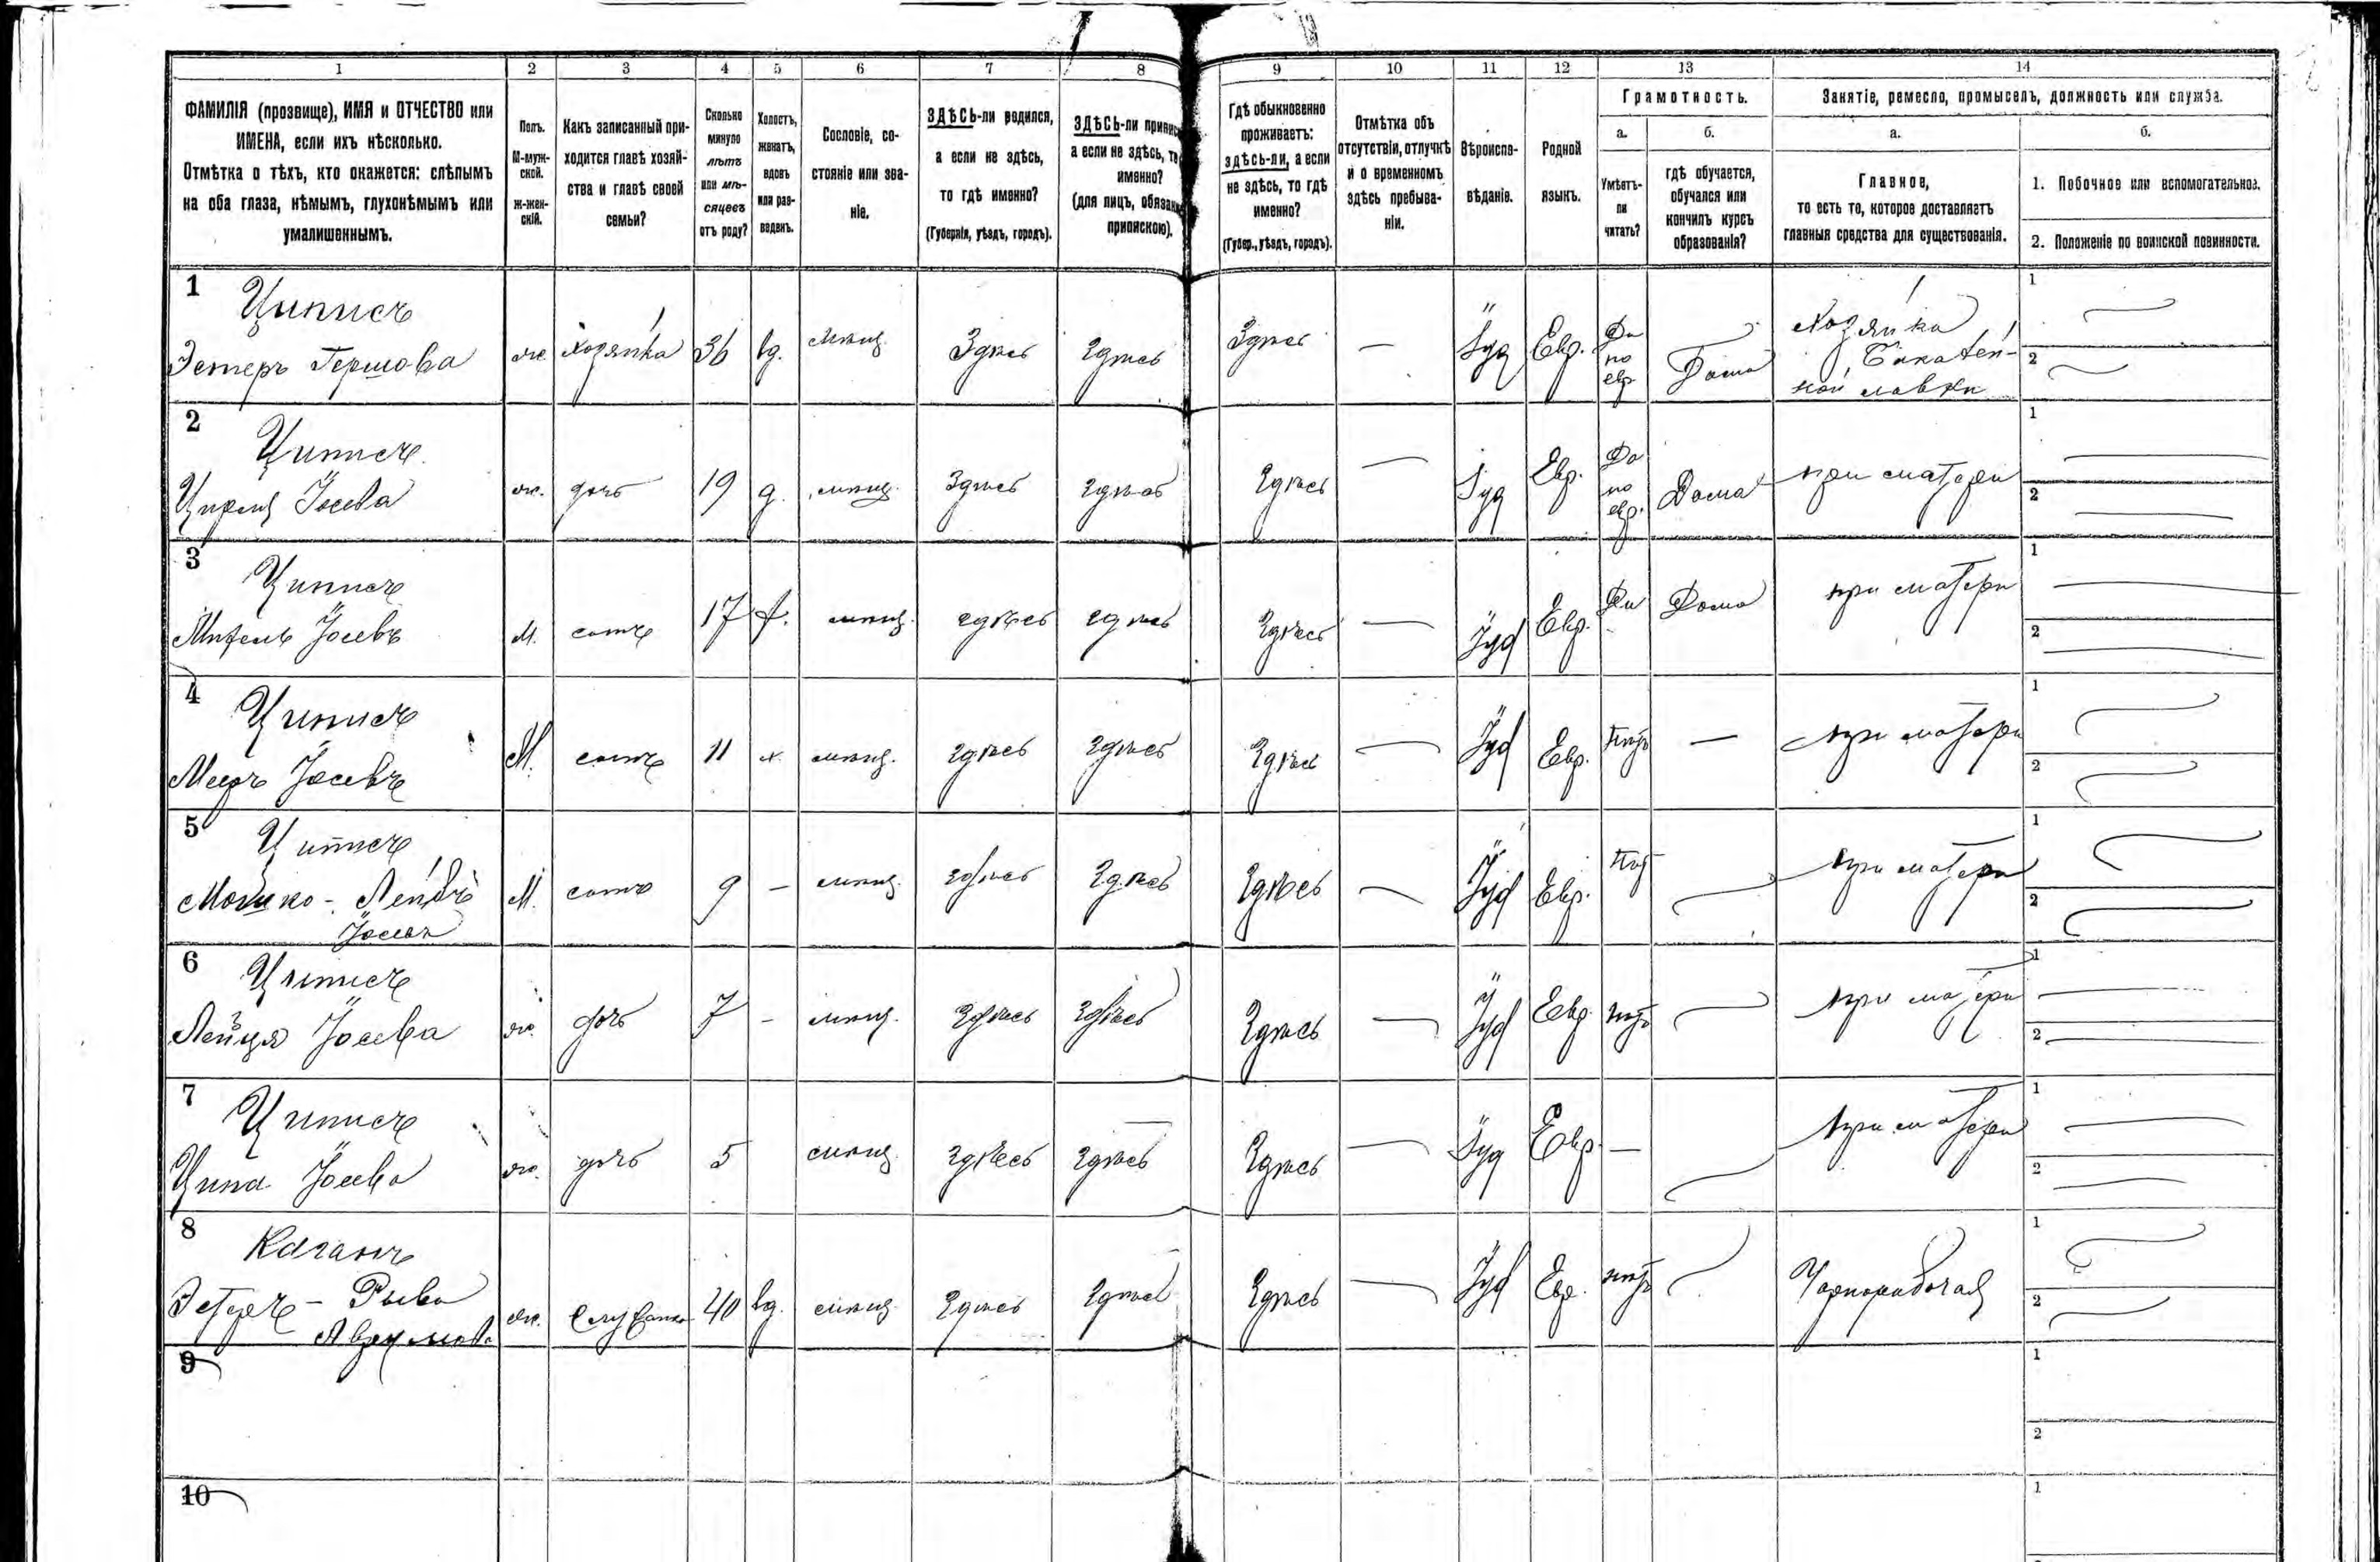 1 2 3 4 5 6 7 8 9 10 11 12 13 14
ФАМИЛІЯ (прозвище), ИМЯ и ОТЧЕСТВО или
ИМЕНА, если ихъ нѣсколько.
Отмѣтка о тѣхъ, кто окажется: слѣпымъ
на оба глаза, нѣмымъ, глухонѣмымъ или
умалишеннымъ.
Полъ.
М-муж-
ской.
ж-жен-
скій.
Какъ записанный при-
ходится главѣ хозяй-
ства и главѣ своей
семьи?
Сколько
минуло
лѣтъ
или мѣ-
сяцевъ
отъ роду?
Холостъ,
женатъ,
вдовъ
или раз-
веденъ.
Сословіе, со-
стояніе или зва-
ніе.
ЗДѢСЬ-ли родился,
а если не здѣсь,
то гдѣ именно?
(Губернія, уѣздъ, городъ).
ЗДѢСЬ-ли
а если не здѣсь,
именно?
(для лицъ,
припискою).
Гдѣ обыкновенно
проживаетъ:
здѣсь-ли, а если
не здѣсь, то гдѣ
именно?
(Губер., уѣздъ, городъ).
Отмѣтка объ
отсутствіи, отлучкѣ
и о временномъ
здѣсь пребыва-
ніи.
Вѣроиспо-
вѣданіе.
Родной
языкъ.
Грамотность.
а. б.
Умѣетъ-
ли
читать?
гдѣ обучается,
обучался или
кончилъ курсъ
образованія?
Занятіе, ремесло, промыселъ, должность или служба.
а. б.
Главное,
то есть то, которое доставляетъ
главныя средства для существованія.
1. Побочное или вспомогательное.
2. Положеніе по воинской повинности.
1 Циписъ
Эстеръ Гершова ж Хозяйка 36 вд. мѣщ. Здѣсь Здѣсь Здѣсь — Іуд Евр. Да по евр. Дома Хозяйка Бакалей-
ной лавки
1
2
2 Циписъ
Іосева ж. дочь 19 д. мѣщ. Здѣсь Здѣсь Здѣсь — Іуд Евр. Да по евр. Дома при матери
1
2
3 Циписъ
Іосевъ М. сынъ 17 мѣщ. Здѣсь Здѣсь Здѣсь — Іуд Евр. Да Дома при матери
1
2
4 Циписъ
Мееръ Іосевъ М. сынъ 11 х. мѣщ. Здѣсь Здѣсь Здѣсь — Іуд Евр. нѣтъ — при матери
1
2
5 Циписъ
Мошко-Лейбъ
Іосевъ М. сынъ 9 — мѣщ. Здѣсь Здѣсь Здѣсь — Іуд Евр. нѣтъ при матери
1
2
6 Циписъ
Іосева ж. дочь 7 — мѣщ. Здѣсь Здѣсь Здѣсь — Іуд Евр. нѣтъ при матери
1
2
7 Циписъ
Ципа Іосева ж. дочь 5 мѣщ. Здѣсь Здѣсь Здѣсь — Іуд Евр. — при матери
1
2
8 Каганъ
Эстеръ-Рыва
Аврумова ж. Служанка 40 вд. мѣщ. Здѣсь Здѣсь Здѣсь — Іуд Евр. нѣтъ Чернорабочая
1
2
9
1
2
10
1